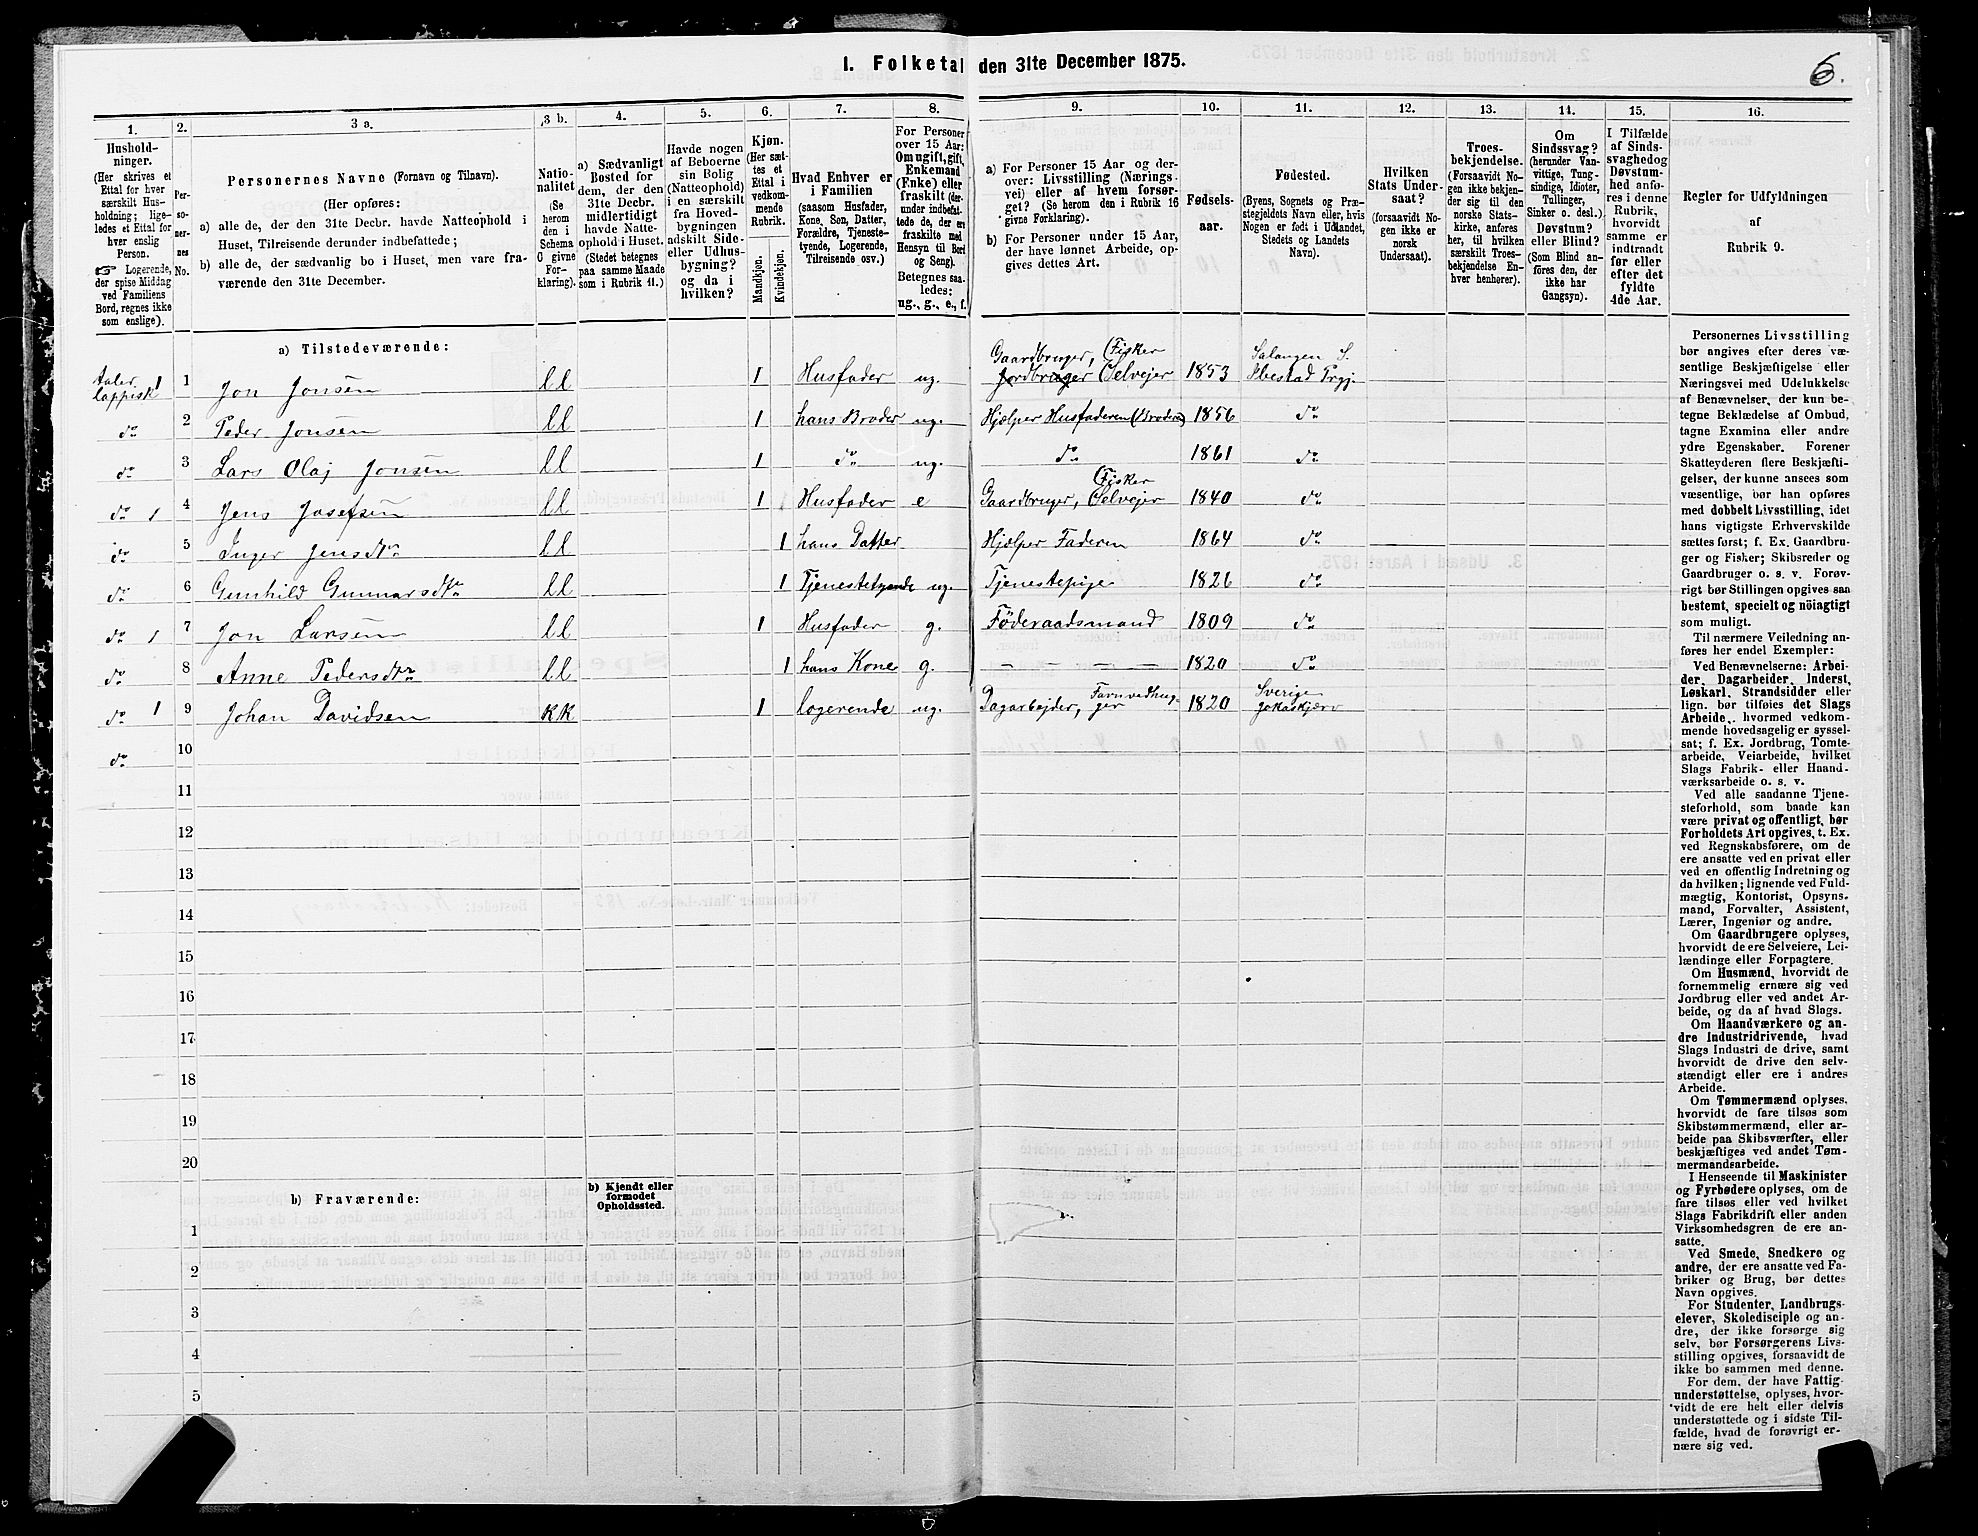 1. Folketal den 31te December 1875.
6.
1.
Husholdninger.
(Her skrives et Ettal for hver særskilt Husholdning; ligeledes et Ettal for hver enslig Person.
☞ Logerende, der spise Middag ved Familiens Bord, regnes ikke som enslige).
2.
Personernes No.
3 a.
Personernes Navne (Fornavn og Tilnavn).
(Her opføres:
a) alle de, der den 31te Decbr. havde Natteophold i Huset, Tilreisende derunder indbefattede;
b) alle de, der sædvanlig bo i Huset, men vare fraværende den 31te December.
3 b.
Nationalitet
(Se herom den i Schema C givne Forklaring).
4.
a) Sædvanligt Bosted for dem, der den 31te Decbr. midlertidigt havde Natteophold i Huset.
(Stedet betegnes paa samme Maade som i Rubrik 11.)
5.
Havde nogen af Beboerne sin Bolig (Natteophold) i en særskilt fra Hovedbygningen adskilt Side- eller Udhusbygning? og da i hvilken?
6.
Kjøn.
(Her sættes et Ettal i vedkommende Rubrik.
Mandkjøn.
Kvindekjøn.
7.
Hvad Enhver er i Familien
(saasom Husfader, Kone, Søn, Datter, Forældre, Tjenestetyende, Logerende, Tilreisende osv.)
8.
For Personer over 15 Aar: Om ugift, gift, Enkemand (Enke) eller fraskilt (derunder indbefattede de, der ere fraskilte med Hensyn til Bord og Seng).
Betegnes saaledes:
ug., g., e., f.
9.
a) For Personer 15 Aar og derover: Livsstilling (Næringsvei) eller af hvem forsørget? (Se herom den i Rubrik 16 givne Forklaring).
b) For Personer under 15 Aar, der have lønnet Arbeide, opgives dettes Art.
10.
Fødselsaar.
11.
Fødested.
(Byens, Sognets og Præstegjeldets Navn eller, hvis Nogen er født i Udlandet, Stedets og Landets Navn).
12.
Hvilken Stats Undersaat?
(forsaavidt Nogen ikke er norsk Undersaat).
13.
Troesbekjendelse.
(Forsaavidt Nogen ikke bekjender sig til den norske Statskirke, anføres her, til hvilken særskilt Troesbekjendelse Enhver henhører).
14.
Om Sindssvag? (herunder Vanvittige, Tungsindige, Idioter, Tullinger, Sinker o. desl.) Døvstum? eller Blind? (Som Blind anføres den, der ikke har Gangsyn).
15.
I Tilfælde af Sindssvaghed og Døvstumhed anføres i denne Rubrik, hvorvidt samme er indtraadt før eller efter det fyldte 4de Aar.
16.
Regler for Udfyldningen
af
Rubrik 9.
a) Tilstedeværende:
taler lappisk 1 1 Jon Jonsen ll 1 Husfader ug. Gaardbruger, (Fisker Selvejer 1853 Salangen S. Ibestad Prgj.
do 2 Peder Jonsen ll 1 hans Broder ug. Hjælper Husfaderen (Broderen) 1856 do
do 3 Lars Olaj Jonsen ll 1 do ug. do 1861 do
do 1 4 Jens Josefsen ll 1 Husfader e Gaardbruger, (Fisker Selvejer 1840 do
do 5 Inger Jensdtr ll 1 hans Datter Hjælper Faderen 1864 do
do 6 Gunhild Gunnarsdtr ll 1 Tjenestetyende ug. Tjenestepige 1826 do
do 1 7 Jon Larsen ll 1 Husfader g. Föderaadsmand 1809 do
do 8 Anne Pedersdtr ll 1 hans Kone g. — — — — 1820 do
do 1 9 Johan Davidsen kk 1 logerende ug. Dagarbejder, Favnvedhugger 1820 Sverige
do 10
11
12
13
14
15
16
17
18
19
20
b) Fraværende:
b) Kjendt eller formodet Opholdssted.
1
2
3
4
5
Personernes Livsstilling
bør angives efter deres væ-
sentlige Beskjæftigelse eller
Næringsvei med Udelukkelse
af Benævnelser, der kun be-
tegne Beklædelse af Ombud,
tagne Examina eller andre
ydre Egenskaber. Forener
Skatteyderen flere Beskjæfti-
gelser, der kunne ansees som
væsentlige, bør han opføres
med dobbelt Livsstilling, idet
hans vigtigste Erhvervskilde
sættes først; f. Ex. Gaardbru-
ger og Fisker; Skibsreder og
Gaardbruger o. s. v. Forøv-
rigt bør Stillingen opgives saa
bestemt, specielt og nöiagtigt
som muligt.
Til nærmere Veiledning an-
føres her endel Exempler:
Ved Benævnelserne: Arbei-
der, Dagarbeider, Inderst,
Løskarl, Strandsidder eller
lign. bør tilføies det Slags
Arbeide, hvormed vedkom-
mende hovedsagelig er syssel-
sat; f. Ex. Jordbrug, Tomte-
arbeide, Veiarbeide, hvilket
Slags Fabrik- eller Haand-
værksarbeide o. s. v.
Ved alle saadanne Tjene-
steforhold, som baade kan
være privat og offentligt, bør
Forholdets Art opgives, t. Ex.
ved Regnskabsførere, om de
ere ansatte ved en privat eller
ved en offentlig Indretning og
da hvilken; lignende ved Fuld-
mægtig, Kontorist, Opsyns-
mand, Forvalter, Assistent,
Lærer, Ingeniør og andre.
Om Gaardbrugere oplyses,
hvorvidt de ere Selveiere, Lei-
lændinge eller Forpagtere.
Om Husmænd, hvorvidt de
fornemmelig ernære sig ved
Jordbrug eller ved andet Ar-
beide, og da af hvad Slags.
Om Haandværkere og an-
dre Industridrivende, hvad
Slags Industri de drive, samt
hvorvidt de drive den selv-
stændigt eller ere i andres
Arbeide.
Om Tømmermænd oplyses,
hvorvidt de fare tilsøs som
Skibstømmermænd, eller ar-
beide paa Skibsværfter, eller
beskjæftiges ved andet Tøm-
mermandsarbeide.
I Henseende til Maskinister
og Fyrbødere oplyses, om de
fare tilsøs eller ved hvilket
Slags Fabrikdrift eller anden
Virksomhedsgren de ere an-
satte.
Ved Smede, Snedkere og
andre, der ere ansatte ved Fa-
briker og Brug, bør dettes
Navn opgives.
For Studenter, Landbrugs-
elever, Skoledisciple og an-
dre, der ikke forsørge sig
selv, bør Forsørgerens Livs-
stilling opgives, forsaavidt de
ikke bo sammen med denne.
For dem, der have Fattig-
understøttelse, oplyses, hvor-
vidt de ere helt eller delvis
understøttede og i sidste Til-
fælde, hvad de forøvrigt er-
nære sig ved.